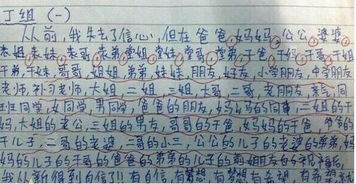 丁组（一）
从前，我失去了信心，但在爸爸，妈妈，公公，婆婆，
表姐，表妹，表哥，表弟，堂姐，堂妹，堂哥，堂弟，干爸，干妈，干哥，干姐
干弟，干妹，哥哥，姐姐，弟弟，妹妹，朋友，好友，小学朋友，中学朋友
老师，补习老师，大姐，二姐，三姐，大哥，二哥，老朋友，亲戚，同
班同学，女同学，男同学，爸爸的朋友，妈妈的同事，二姐的干
妈，大姐的老公，三姐的男友，哥哥的干爸，妈妈的干爸的
干儿子，二哥的老婆，三哥的小三，公公的儿子的老婆的弟弟，
妈的儿子的干哥的爸爸的弟弟的儿子的前朋友的祝福，
我从新得到自信了!!有自信，有梦想，有梦想，有希望，有希望